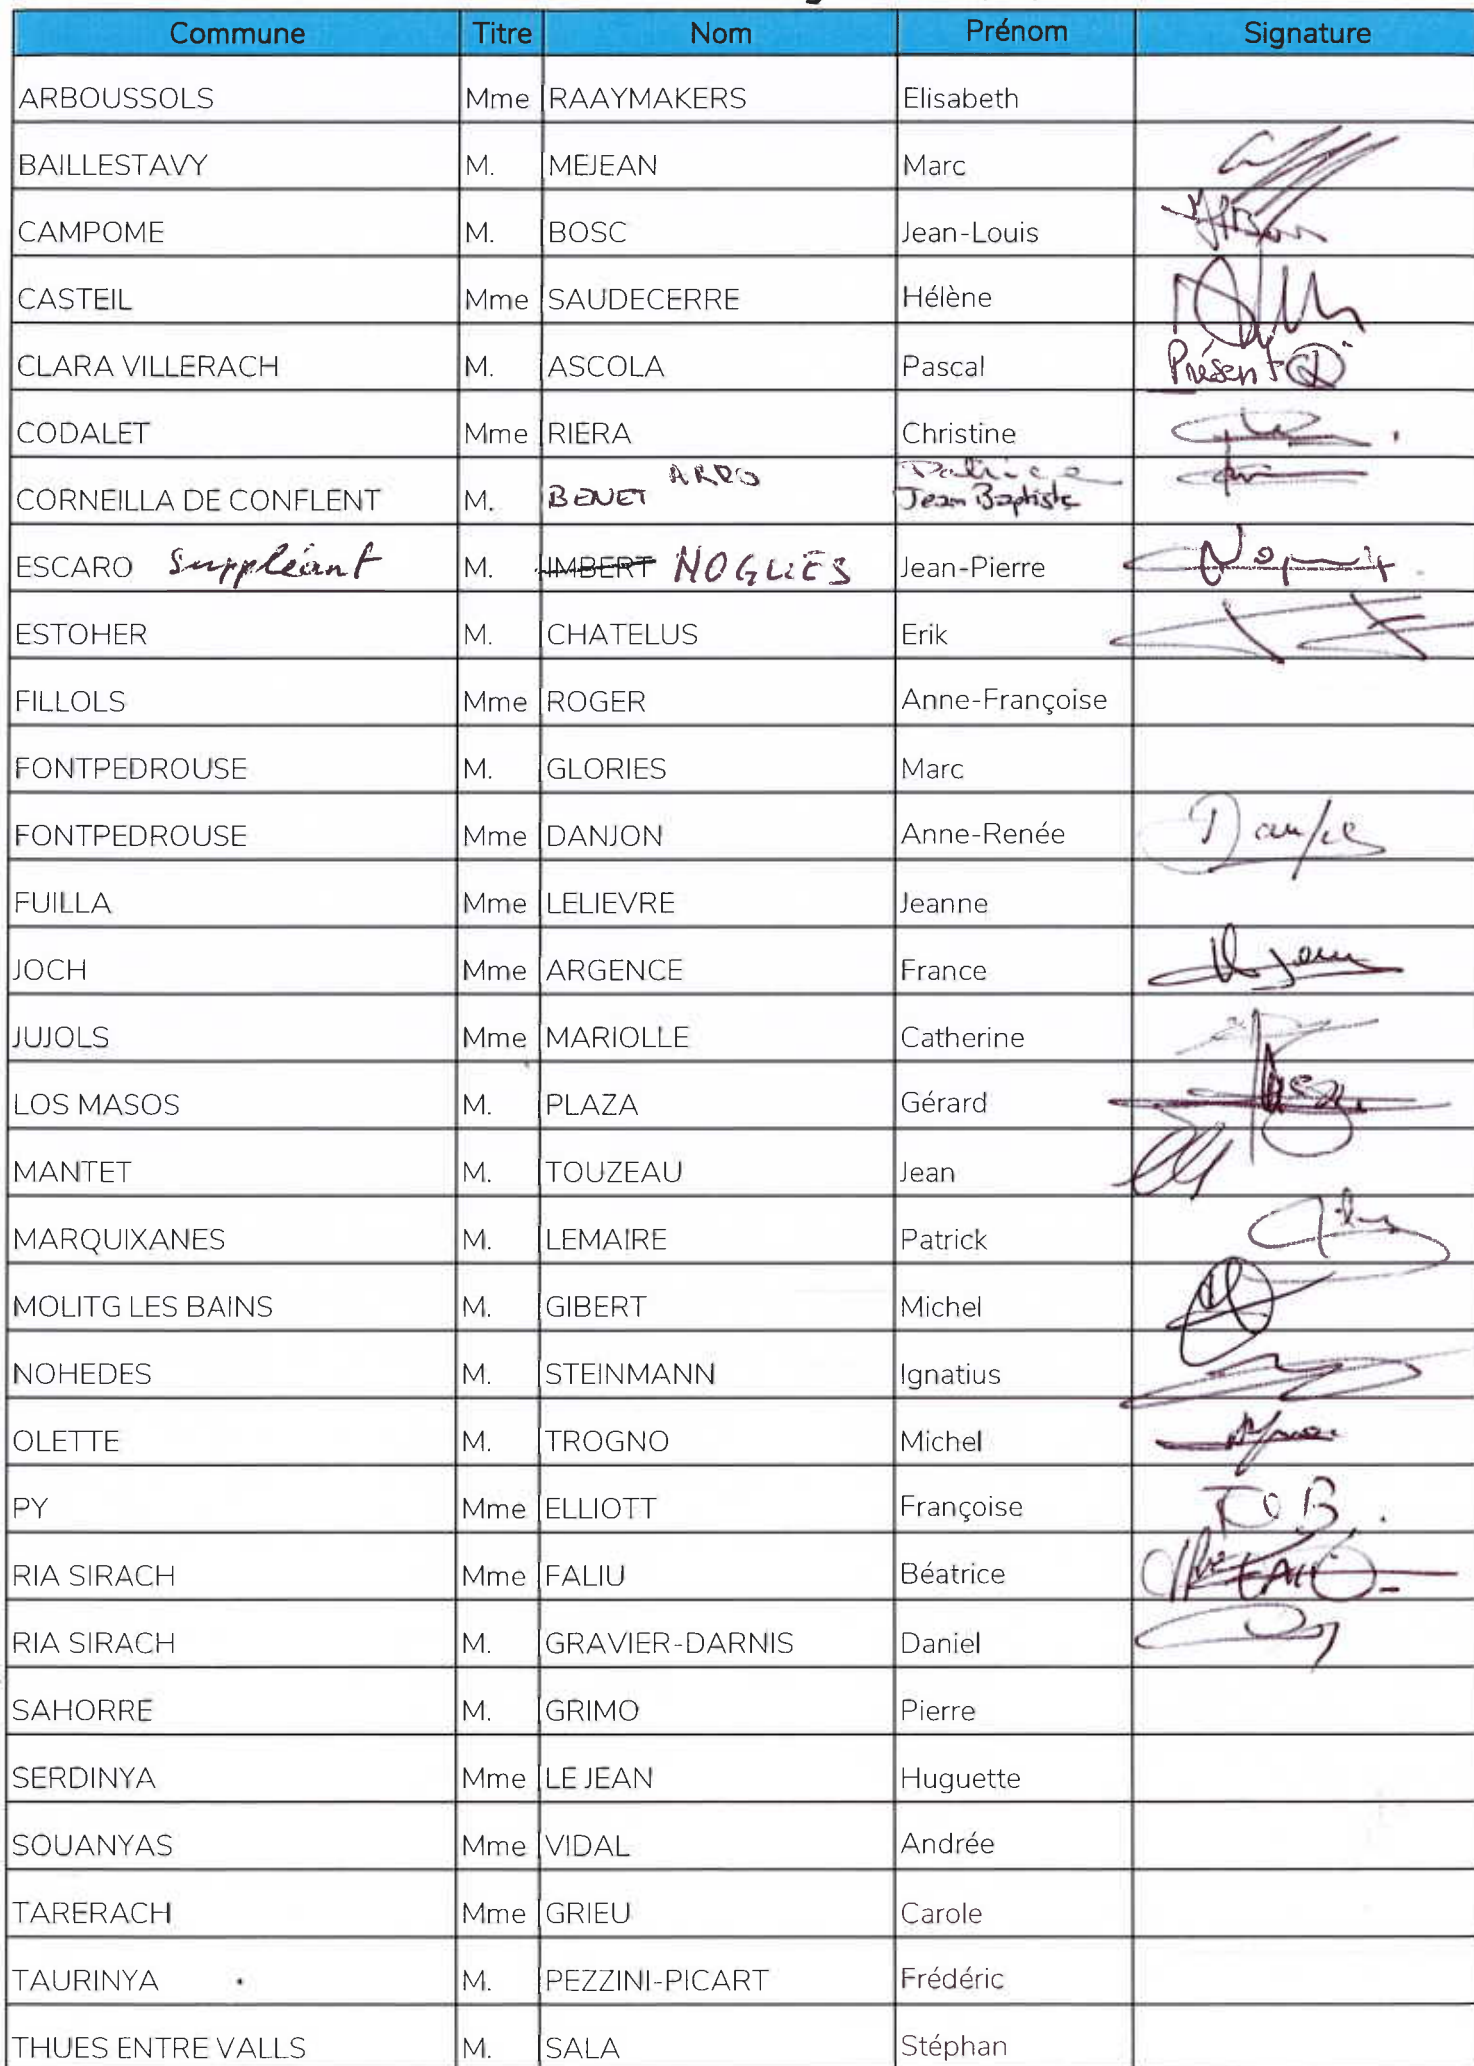 Commune Titre Nom Prénom Signature
ARBOUSSOLS Mme RAAYMAKERS Elisabeth
BAILLESTAVY M. MEJEAN Marc
CAMPOME M. BOSC Jean-Louis
CASTEIL Mme SAUDECERRE Hélène
CLARA VILLERACH M. ASCOLA Pascal Présent
CODALET Mme RIERA Christine
ARRO Patrice
CORNEILLA DE CONFLENT M. BENET Jean Baptiste
ESCARO Suppléant M. IMBERT NOGUES Jean-Pierre
ESTOHER M. CHATELUS Erik
FILLOLS Mme ROGER Anne-Françoise
FONTPEDROUSE M. GLORIES Marc
FONTPEDROUSE Mme DANJON Anne-Renée
FUILLA Mme LELIEVRE Jeanne
JOCH Mme ARGENCE France
JUJOLS Mme MARIOLLE Catherine
LOS MASOS M. PLAZA Gérard
MANTET M. TOUZEAU Jean
MARQUIXANES M. LEMAIRE Patrick
MOLITG LES BAINS M. GIBERT Michel
NOHEDES M. STEINMANN Ignatius
OLETTE M. TROGNO Michel
PY Mme ELLIOTT Françoise
RIA SIRACH Mme FALIU Béatrice
RIA SIRACH M. GRAVIER-DARNIS Daniel
SAHORRE M. GRIMO Pierre
SERDINYA Mme LE JEAN Huguette
SOUANYAS Mme VIDAL Andrée
TARERACH Mme GRIEU Carole
TAURINYA M. PEZZINI-PICART Frédéric
THUES ENTRE VALLS M. SALA Stéphan